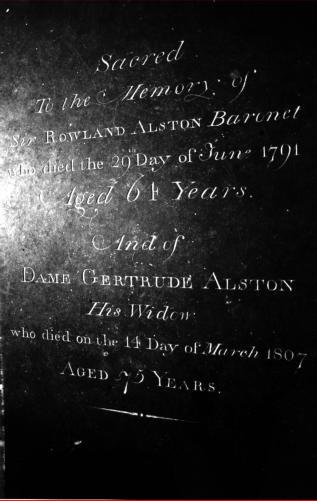 Sacred
To the Memory of
Sir ROWLAND ALSTON Baronet
who died the 29 Day of June 1791
Aged 64 Years.
And of
DAME GERTRUDE ALSTON
His Widow
who died on the 14 Day of March 1807
AGED 75 YEARS.